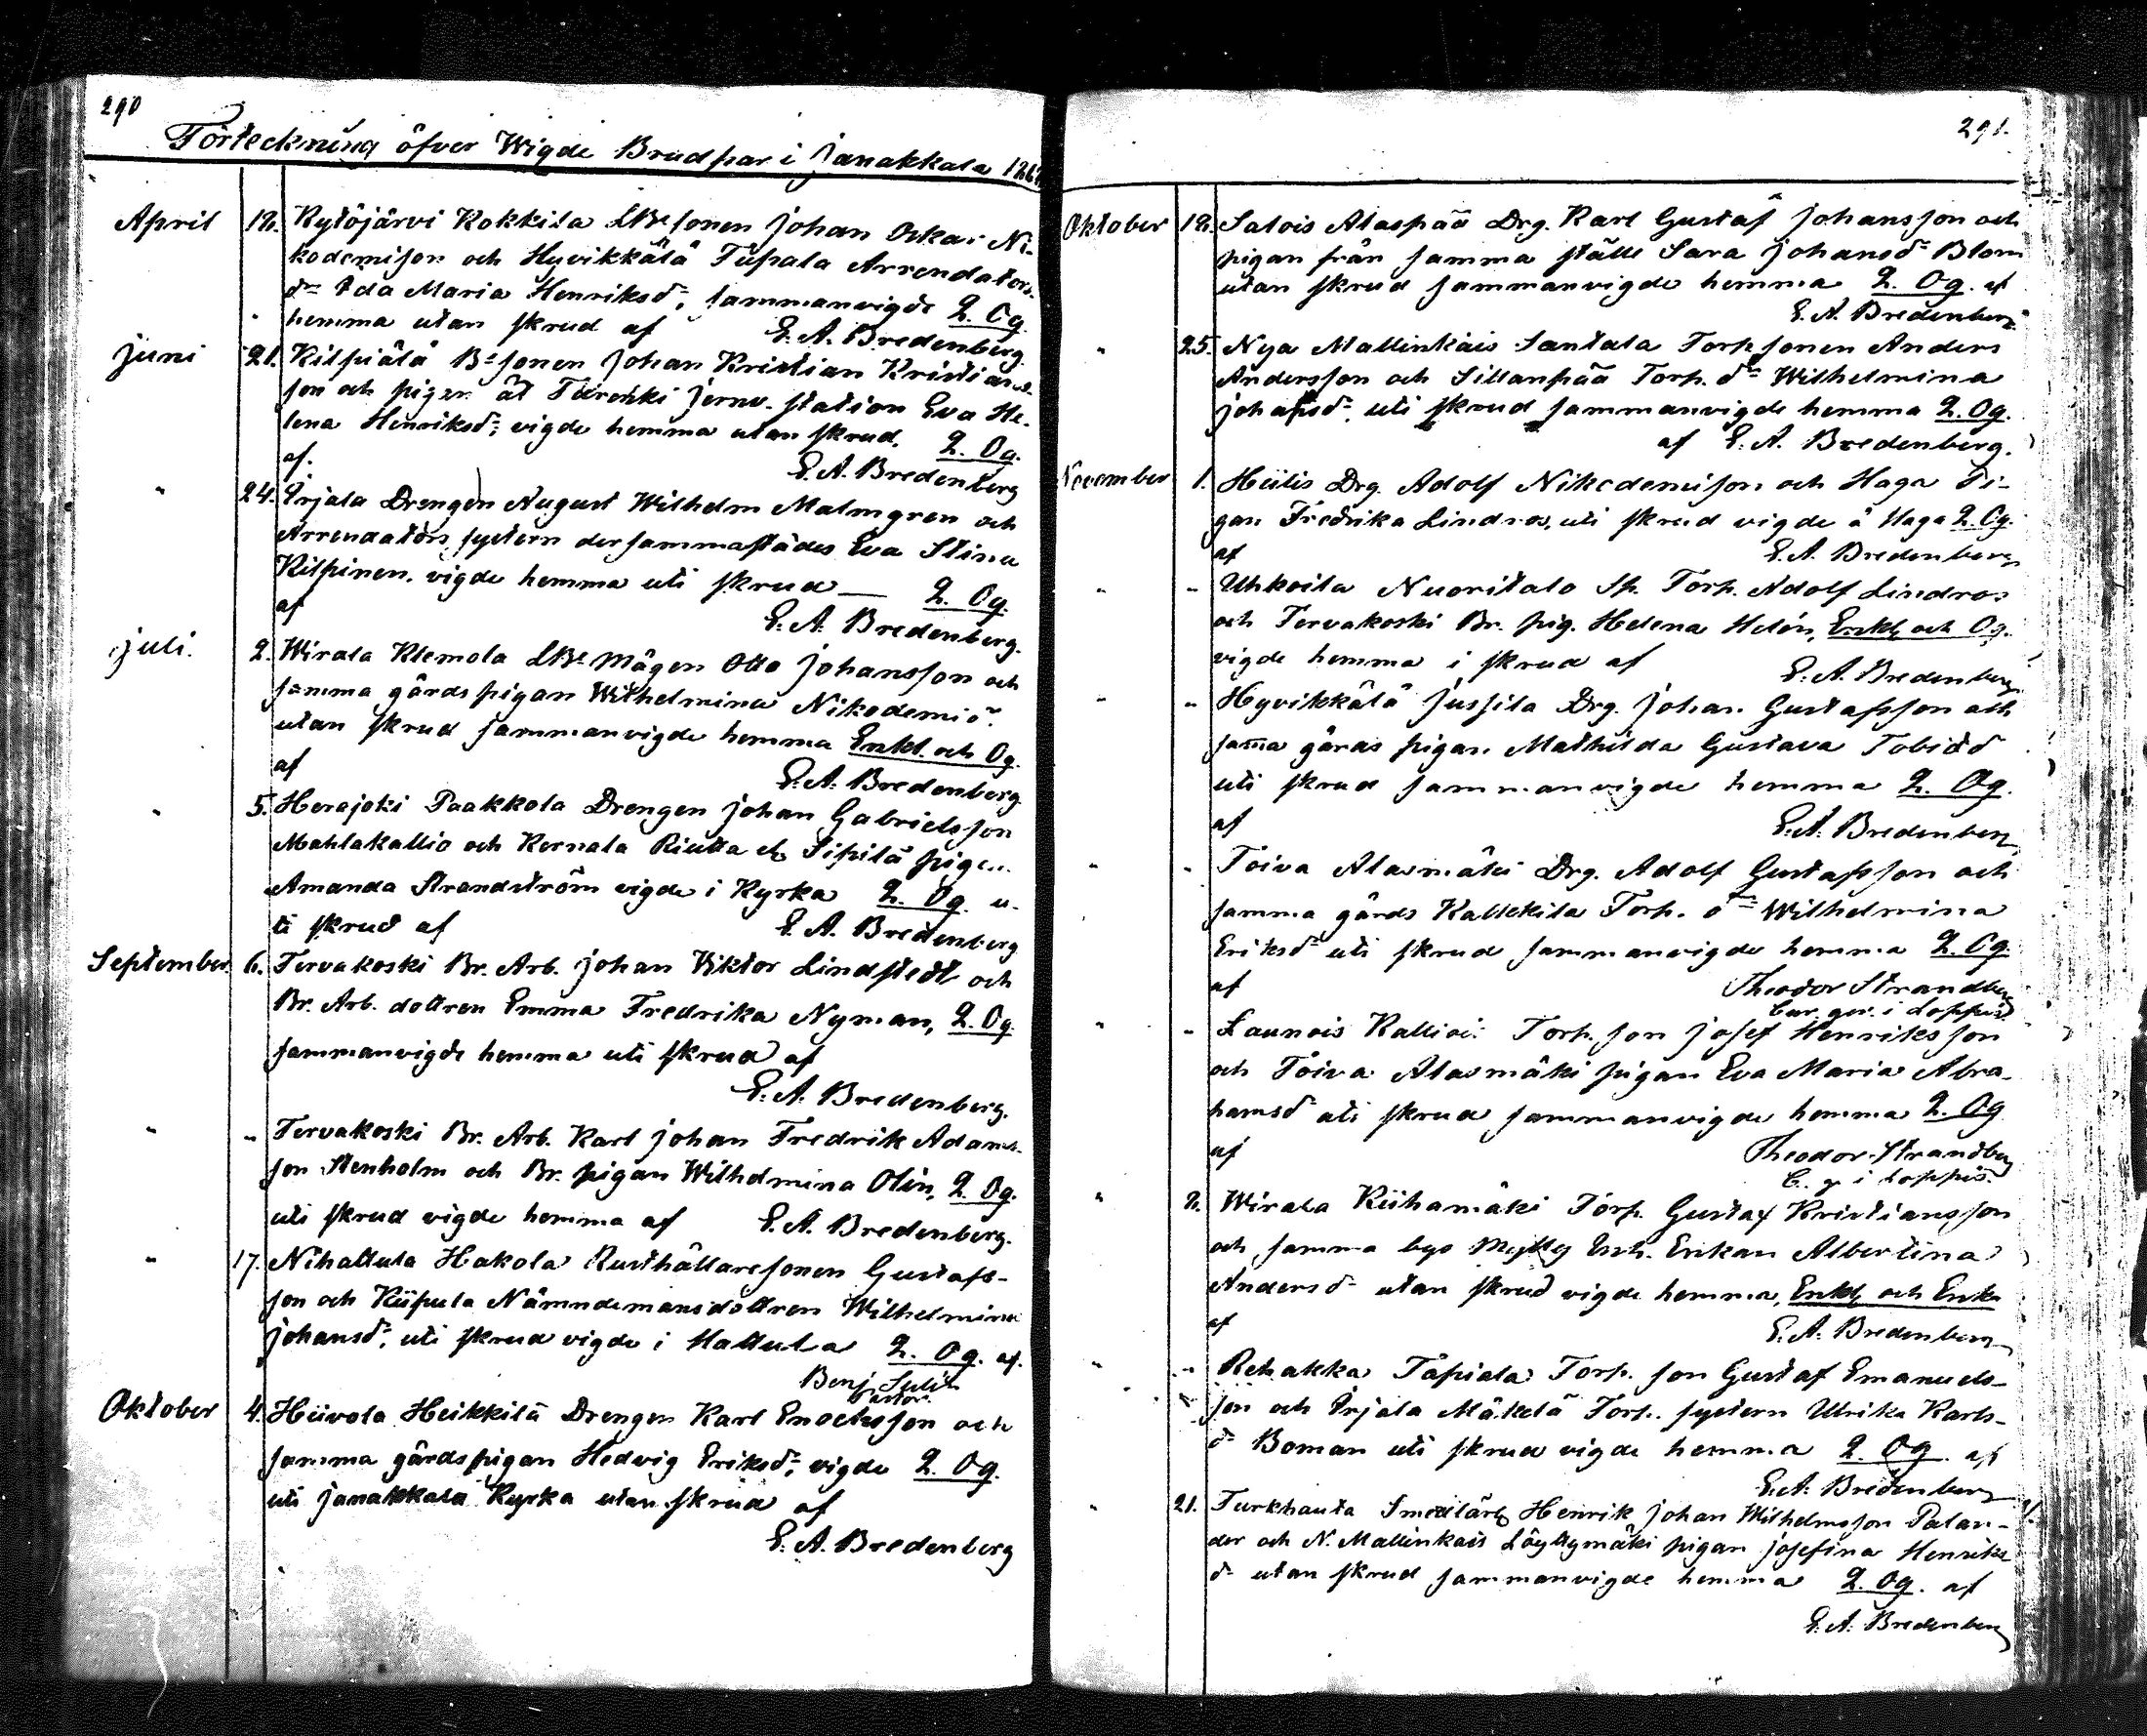 290
Förteckning öfver Wigde Brudpar i Janakkala
April 18. Rytöjärvi Kokkila LBe sonen Johan Oskar Ni-
kodemison och Hyvikkälä Tüpala Arrendators
dr Ida Maria Henriksdr, sammanvigde 2. Og.
hemma utan skrud af E. A. Bredenberg
Juni 21. Kilpiälä Be sonen Johan Kristian Kristians-
son och pigan åt Türenki jernv. station Eva He-
lena Henriksdr, vigde hemma utan skrud. 2. Og.
af. E. A. Bredenberg
" 24. Irjala Drengen August Wilhelm Malmgren och
Arrendators systern dersammastädes Eva Stina
Kilpinen, vigde hemma uti skrud — 2. Og.
af E. A. Bredenberg.
Juli. 2. Wirala Klemola LBe mågen Otto Johansson och
samma gårds pigan Wilhelmina Nikodemid.
utan skrud sammanvigde hemma Enkl. och Og.
af E. A. Bredenberg.
" 5. Herajoki Paakkola Drengen Johan Gabrielsson
Mahlakallio och Kernala Riutta eh Sipilä pigan
Amanda Strandström vigde i Kyrka 2. Og. u-
ti skrud af E. A. Bredenberg
September 6. Tervakoski Br. Arb. Johan Viktor Lindstedt och
Br. Arb. dottren Emma Fredrika Nyman, 2. Og.
sammanvigde hemma uti skrud af
E. A. Bredenberg.
" " Tervakoski Br. Arb. Karl Johan Fredrik Adams-
son Stenholm och Br. pigan Wilhelmina Olin, 2. Og.
uti skrud vigde hemma af E. A. Bredenberg.
" 17. Nihattula Hakola Rusthållaresonen Gustafs-
son och Kiipula Nämndemansdottren Wilhelmina
Johansdr, uti skrud vigde i Hattula 2. Og. af.
Benj.
Pastor.
Oktober 4. Hiivola Heikkilä Drengen Karl Enochsson och
samma gårds pigan Hedvig Eriksdr, vigde 2. Og.
uti Janakkala Kyrka utan skrud af
E. A. Bredenberg
291.
Oktober 18. Salois Alaspää Drg. Karl Gustaf Johansson och
pigan från samma ställe Sara Johansdr Blom
utan skrud sammanvigde hemma 2. Og. af
E. A. Bredenberg
" 25. Nya Mallinkais Santala Torp sonen Anders
Andersson och Sillanpää Torp. dr Wilhelmina
Johansdr uti skrud sammanvigde hemma 2. Og.
af E. A. Bredenberg.
November 1. Hiilis Drg. Adolf Nikodemison och Haga Pi-
gan Fredrika Lindros, uti skrud vigde å Haga 2. Og.
af E. A. Bredenberg
" " Uhkoila Nuoritalo Sp. Torp. Adolf Lindros
och Tervakoski Br. pig. Helena Helén, Enkl och Og.
vigde hemma i skrud af E. A. Bredenberg
" " Hyvikkälä Jussila Drg. Johan Gustafsson och
samma gårds pigan Mathilda Gustava Tobiasd
uti skrud sammanvigde hemma 2. Og.
af E. A. Bredenberg
" " Toiva Alasmäki Drg. Adolf Gustafsson och
samma gårds Kallekila Torp. dr Wilhelmina
Eriksdr uti skrud sammanvigde hemma 2. Og
af Theodor Strandberg
i Loppis.
" " Launois Kallioi: Torp. son Josef Henriksson
och Toiva Alasmäki pigan Eva Maria Abra-
hamsd uti skrud sammanvigde hemma 2. Og
af Theodor Strandberg
i Loppis.
" 8. Wirala Riihamäki Torp. Gustaf Kristiansson
och samma bys Mylly Inh. Enkan Albertina
Andersdr utan skrud vigde hemma, Enkl och Enka
af E. A. Bredenberg
" " Rehakka Tapiala Torp. son Gustaf Emanuels-
son och Irjala Mäkelä Torp. systern Ulrika Karls-
dr Boman uti skrud vigde hemma 2. Og. af
E. A. Bredenberg
" 21. Turkhauta Smedlärl Henrik Johan Wilhelmsson Palan-
der och N. Mallinkais Löyttymäki pigan Josefina Henriks
dr utan skrud sammanvigde hemma 2. Og. af
E. A. Bredenberg